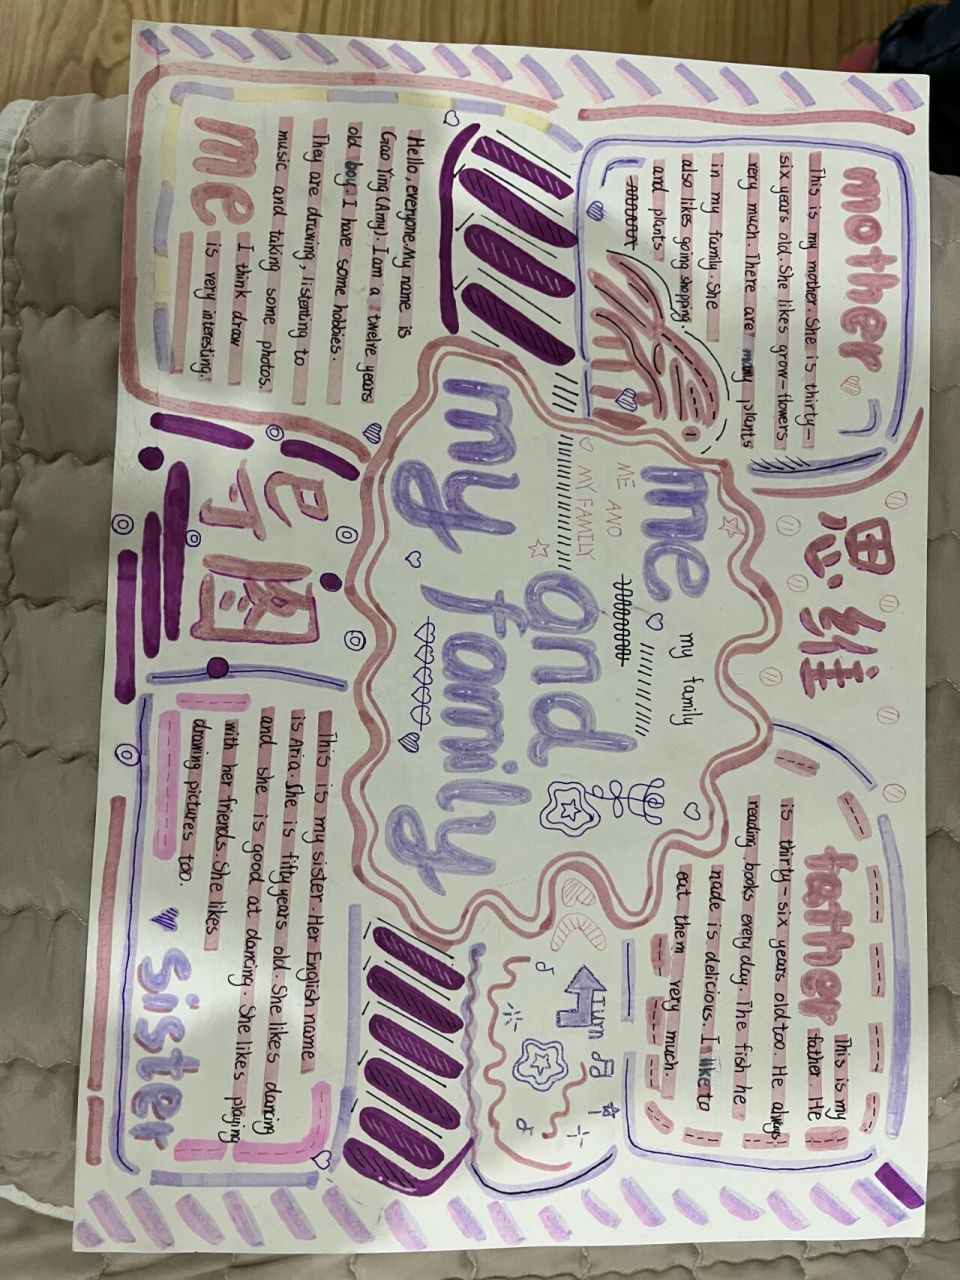 思维
导图
me and
my family
ME AND
MY FAMILY
my family
mother
This is my mother. She is thirty-
six years old. She likes grow-flowers
very much. There are many plants
in my family. She
also likes going shopping.
and plants
father
This is my
father. He
is thirty-six years old too. He always
reading books every day. The fish he
made is delicious. I like to
eat them very much.
Turn
me
Hello, everyone. My name is
Gao Ting (Amy). I am a twelve years
old boy. I have some hobbies.
They are drawing, listenting to
music and taking some photos.
I think draw
is very interesting.
This is my sister. Her English name
is Aria. She is fifty years old. She likes dancing
and she is good at dancing. She likes playing
with her friends. She likes
drawing pictures too.
sister